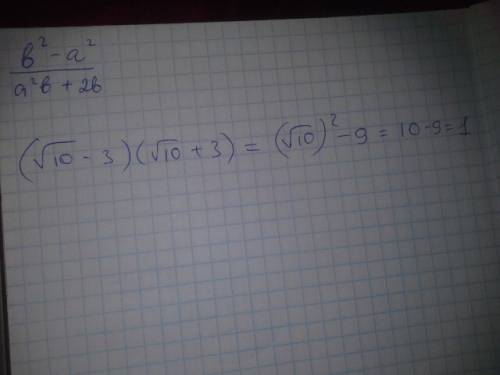 b² - a²
a²b + 2b
(√10 - 3)(√10 + 3) = (√10)² - 9 = 10 - 9 = 1